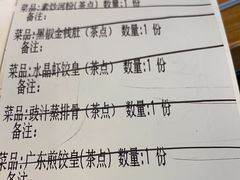 菜品:素炒河粉(茶点) 数量:1 份
备注:
菜品:黑椒金钱肚(茶点) 数量:1 份
备注:
菜品:水晶虾饺皇(茶点) 数量:1 份
备注:
菜品:豉汁蒸排骨(茶点) 数量:1 份
备注:
菜品:广东煎饺皇(茶点) 数量:1 份
备注: